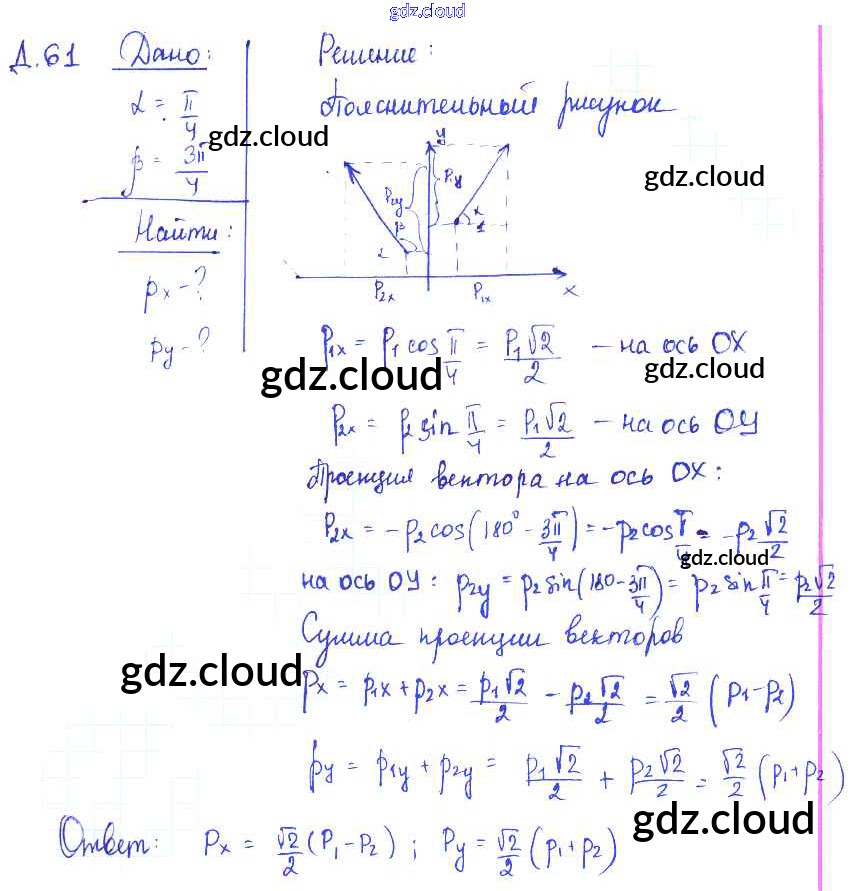 gdz.cloud
Д.61 Дано: Решение:
α = π/4 Пояснительный рисунок
gdz.cloud
β = 3π/4
gdz.cloud
Найти:
px - ?
py - ?
y
P2y P1y
β α
α
P2x P1x x
P1x = P1 cos π/4 = P1√2/2 – на ось OX
gdz.cloud gdz.cloud
P2x = P2 sin π/4 = P1√2/2 – на ось ОУ
Проекция вектора на ось OX:
P2x = -p2 cos(180° - 3π/4) = -p2 cos π/4 = -p2 √2/2
gdz.cloud
на ось ОУ: p2y = p2 sin(180 - 3π/4) = p2 sin π/4 = p2√2/2
Сумма проекции векторов
gdz.cloud
Px = p1x + p2x = p1√2/2 - p2√2/2 = √2/2 (p1-p2)
py = p1y + p2y = p1√2/2 + p2√2/2 = √2/2 (p1+p2)
gdz.cloud
Ответ: Px = √2/2 (P1-P2); Py = √2/2 (p1+p2)